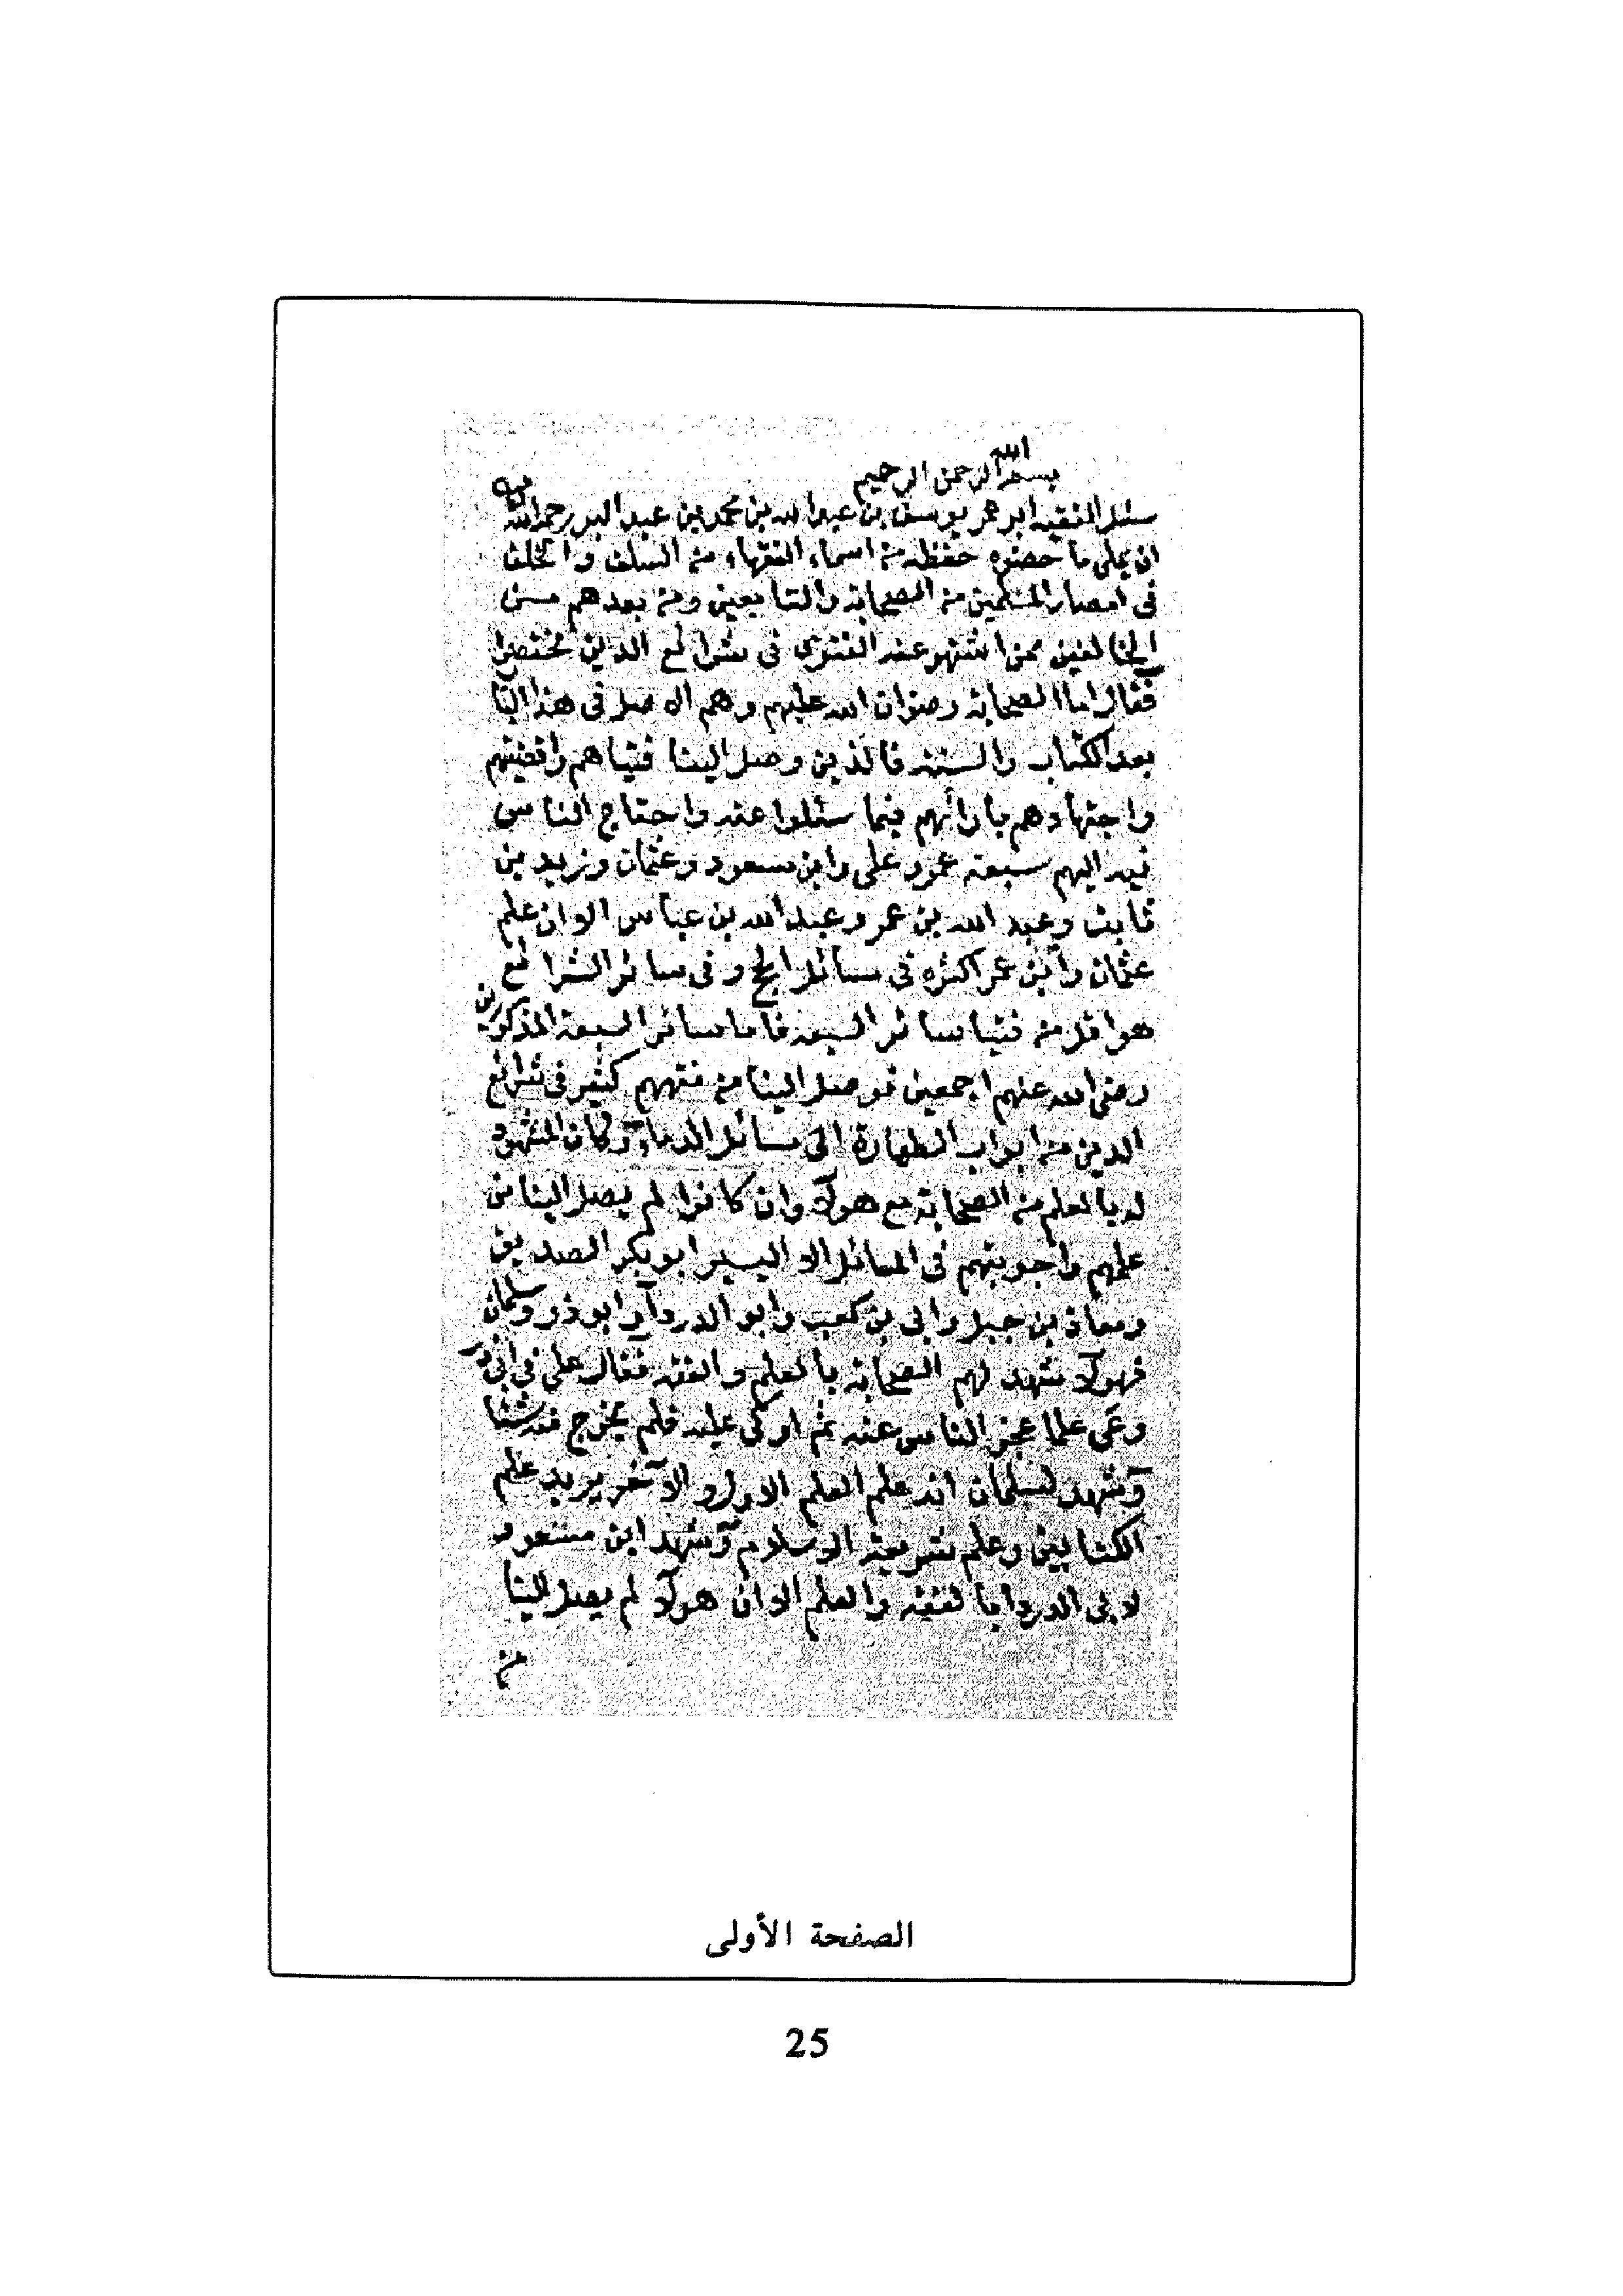 بسم الله الرحمن الرحيم
سئل الفقيه ابو عمر يوسف بن عبد الله بن محمد بن عبد البر رحمه الله
ان يملي ما حضره حفظه من اسماء الفقهاء من السلف والخلف
في امصار المسلمين من الصحابة والتابعين ومن بعدهم من
الخالفين ممن اشتهر عند الفتوى في شرائع الدين مختصرا
فقال اما الصحابة رضوان الله عليهم وهم الاصل في هذا البا
بعد الكتاب والسنة فالذين وصل الينا فتياهم واقضيتهم
واجتهادهم بارائهم فيما سئلوا عنه واحتاج الناس
فيه اليهم سبعة عمر وعلى وابن مسعود وعثمان وزيد بن
ثابت وعبد الله بن عمر وعبد الله بن عباس الا ان علم
عثمان وابن عمر اكثره في مسائل الحج وفي سائر الشرائع
هو اقل من فتيا سائر السبعة فاما سائر السبعة المذكورين
رضي الله عنهم اجمعين فوصل الينا من فقههم كثير في شرائع
الدين من ابواب الطهارة الى مسائل الدماء وكان المشهود
له بالعلم من الصحابة مع هولآء وان كانوا لم يصل الينا من
علمهم واجوبتهم في المسائل الا اليسير ابو بكر الصديق
ومعاذ بن جبل وابي بن كعب وابو الدردآء وابو ذر وسلمان
فهولآء شهد لهم الصحابة بالعلم والفقه فقال علي في ابي ذر
وعى علما عجز الناس عنه ثم اوكى عليه فلم يخرج منه شيئا
وشهد لسلمان انه علم العلم الاول والآخر يريد علم
الكتابين وعلم شريعة الاسلام وشهد ابن مسعود
لابي الدرداء بالفقه والعلم الا ان هولآء لم يصل الينا
من
الصفحة الأولى
25